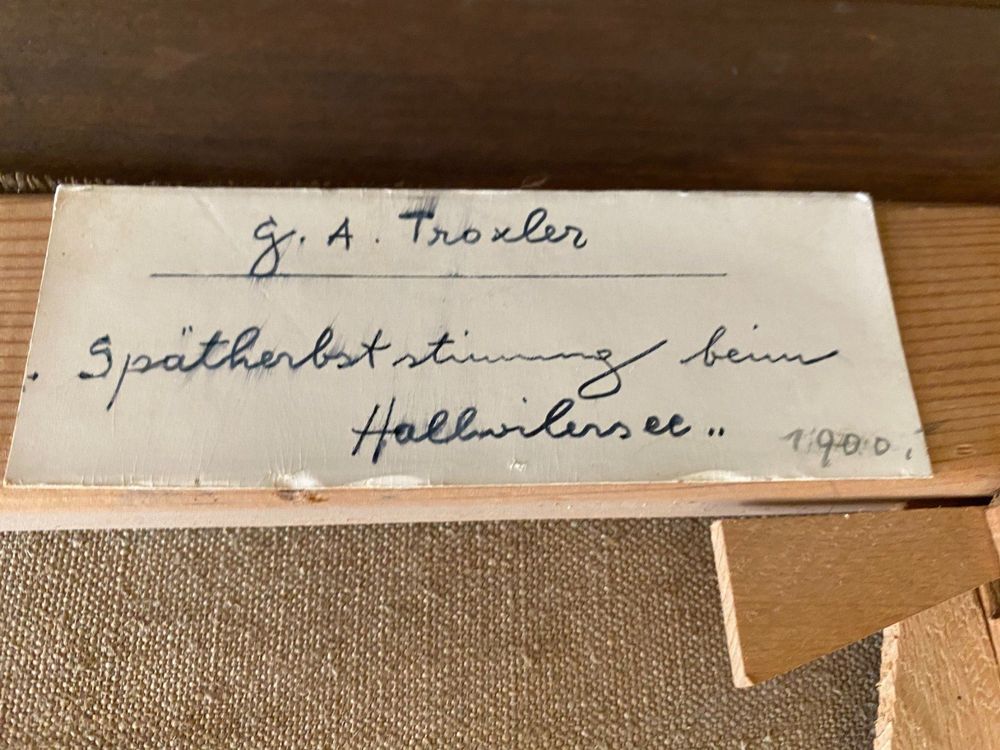 G. A. Troxler
„Spätherbststimmung beim
Hallwilersee"
1900.